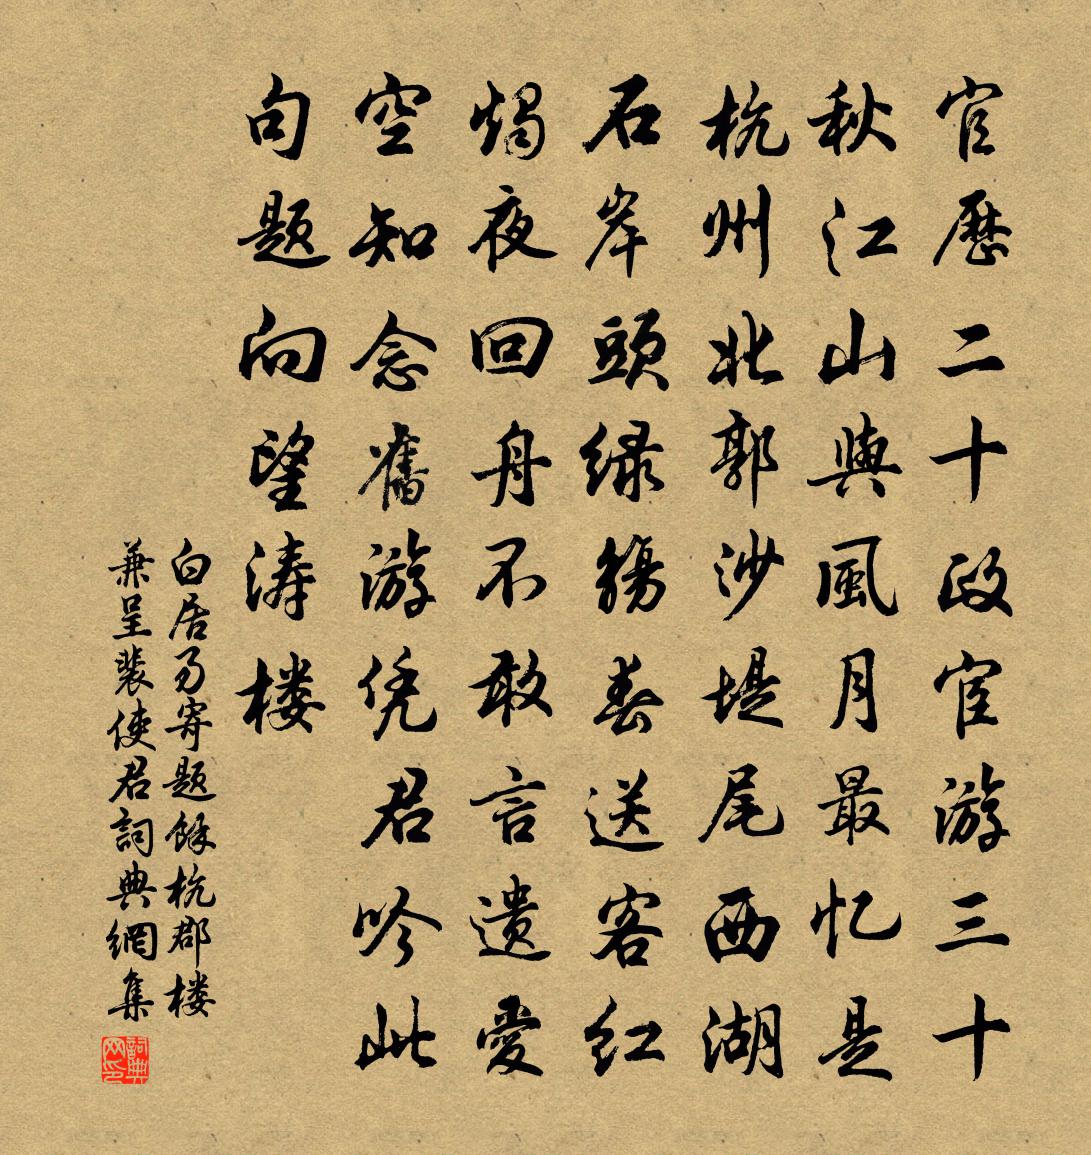 官歷二十政宦游三十
秋江山與風月最忆是
杭州北郭沙堤尾西湖
石岸頭緑觴春送客红
燭夜回舟不敢言遗愛
空知念舊游凭君吟此
句题向望涛楼
白居易寄题餘杭郡楼
兼呈裴使君詞典網集
詞典网印